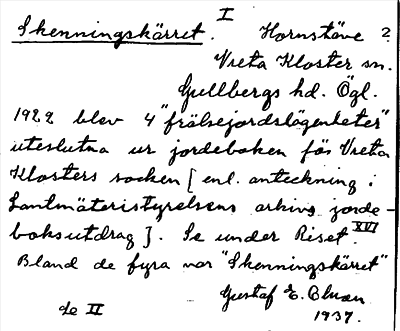 I
Skenningskärret. Hornstäve ?
Vreta Kloster sn.
Gullbergs hd. Ögl.
1922 blev 4 "frälsejordslägenheter"
uteslutna ur jordeboken för Vreta
Klosters socken [enl. anteckning i
Lantmäteristyrelsens arkivs jorde-
boksutdrag]. Se under Riset XVI.
Bland de fyra var "Skenningskärret"
Gustaf E. Bluan
1937.
de II